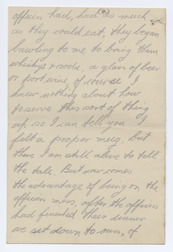 officers had, had as much
as they could eat, they began
bawling to me to bring them
whisky & soda, a glass of beer
or port wine of course I
knew nothing about how
to serve this sort of thing
up so I can tell you I
felt a proper mug, but
then I am still alive to tell
the tale. But now comes
the advantage of being on the
officers mess, after the officers
had finished their dinner
we sat down to ours, of